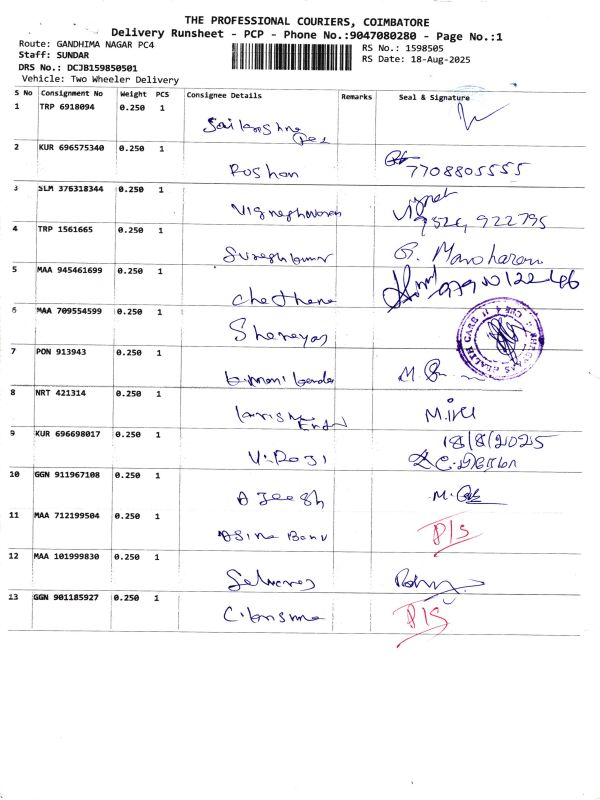 THE PROFESSIONAL COURIERS, COIMBATORE
Delivery Runsheet - PCP - Phone No.:9047080280 - Page No.:1
Route: GANDHIMA NAGAR PC4
Staff: SUNDAR
DRS No.: DCJB159850501
Vehicle: Two Wheeler Delivery
RS No.: 1598505
RS Date: 18-Aug-2025
S No Consignment No Weight PCS Consignee Details Remarks Seal & Signature
1 TRP 6918094 0.250 1
2 KUR 696575340 0.250 1 Roshan 7708805555
3 SLM 376318344 0.250 1 Vigneshwaran
4 TRP 1561665 0.250 1 Sureshkumar G. Manoharan
5 MAA 945461699 0.250 1 Chethana
6 MAA 709554599 0.250 1 Shereyas
7 PON 913943 0.250 1
8 NRT 421314 0.250 1
9 KUR 696698017 0.250 1 V.Roji 18/8/2025
10 GGN 911967108 0.250 1 Ajeesh
11 MAA 712199504 0.250 1 Asina Banu P/S
12 MAA 101999830 0.250 1 Selvaraj
13 GGN 901185927 0.250 1 P/S